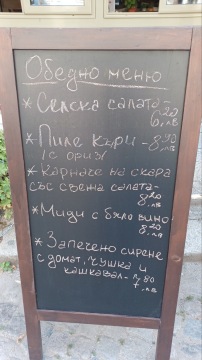 Обедно меню
* Селска салата-
6,20 лв
* Пиле къри - 8,90 лв
/с ориз/
* Карначе на скара
със свежа салата-
8,20 лв
* Миди с бяло вино
8,20 лв
* Запечено сирене
с домат, чушка и
кашкавал- 7,80
лв